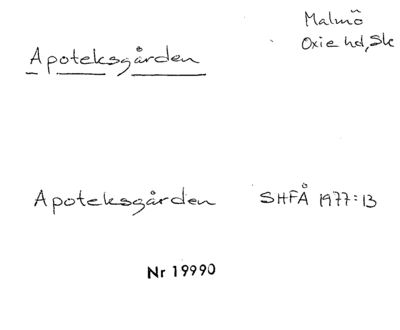 Malmö
Apoteksgården
Oxie hd, Sk
Apoteksgården SHFÅ 1977:13
Nr 19990